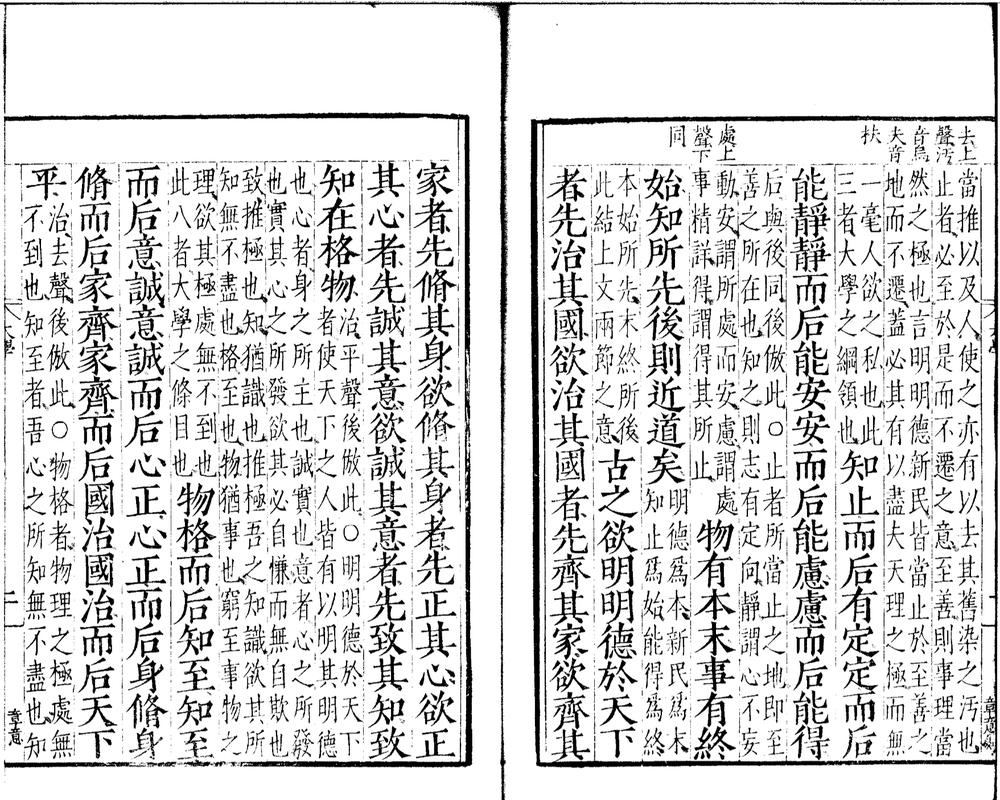 去上
聲汚
音烏
夫音
扶
處上
聲下
同
當推以及人使之亦有以去其舊染之汚也
止者必至於是而不遷之意至善則事理當
然之極也言明明德新民皆當止於至善之
地而不遷蓋必其有以盡夫天理之極而無
一毫人欲之私也此
三者大學之綱領也
知止而后有定定而后
能靜靜而后能安安而后能慮慮而后能得
后與後同後倣此○止者所當止之地即至
善之所在也知之則志有定向靜謂心不妄
動安謂所處而安慮謂處
事精詳得謂得其所止
物有本末事有終
始知所先後則近道矣
明德爲本新民爲末
知止爲始能得爲終
本始所先末終所後
此結上文兩節之意
古之欲明明德於天下
者先治其國欲治其國者先齊其家欲齊其
家者先脩其身欲脩其身者先正其心欲正
其心者先誠其意欲誠其意者先致其知致
知在格物
治平聲後倣此○明明德於天下
者使天下之人皆有以明其明德
也心者身之所主也誠實也意者心之所發
也實其心之所發欲其必自慊而無自欺也
致推極也知猶識也推極吾之知識欲其所
知無不盡也格至也物猶事也窮至事物之
理欲其極處無不到也
此八者大學之條目也
物格而后知至知至
而后意誠意誠而后心正心正而后身脩身
脩而后家齊家齊而后國治國治而后天下
平
治去聲後倣此○物格者物理之極處無
不到也知至者吾心之所知無不盡也知
二
章意